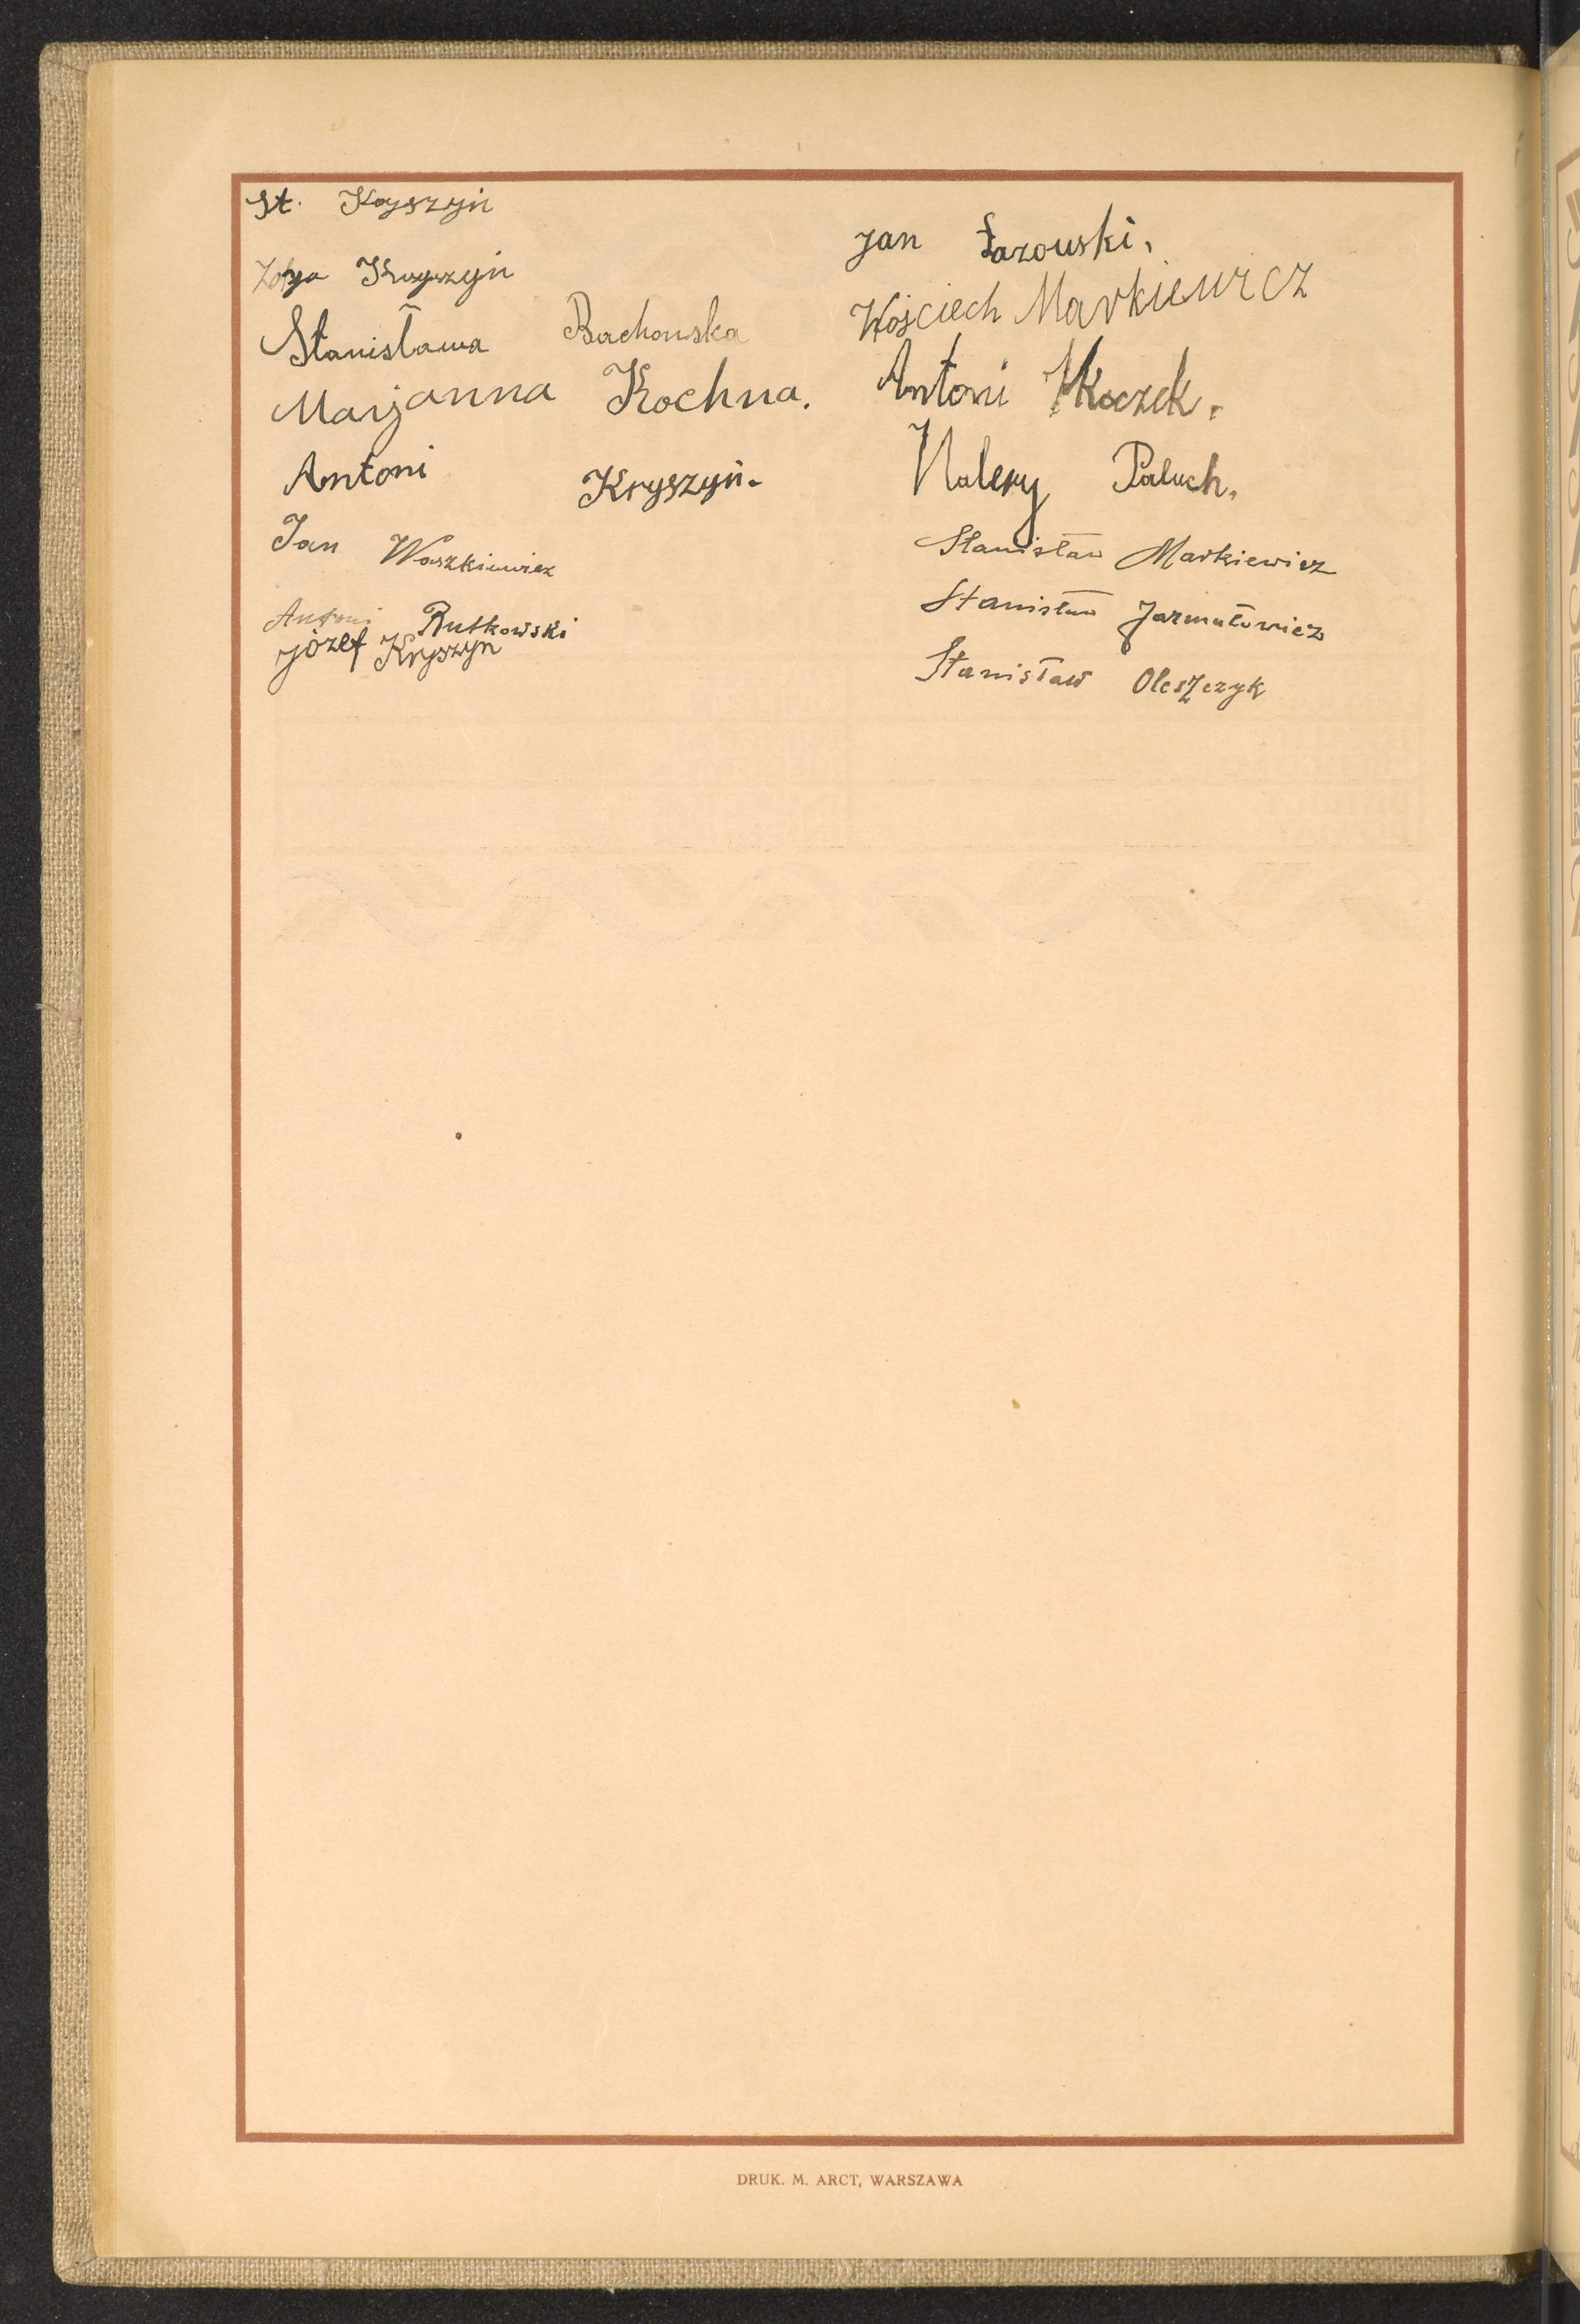 St. Kryszyń
Zofja Kryszyń
Stanisława Bachowska
Marjanna Kochna.
Antoni Kryszyń.
Jan Waszkiewicz
Antoni Rutkowski
józef Kryszyń
Jan Łazowski.
Wojciech Markiewicz
Antoni
Walery Paluch.
Stanisław Markiewicz
Stanisław Jarmułowicz
Stanisław Oleszczyk
DRUK. M. ARCT, WARSZAWA